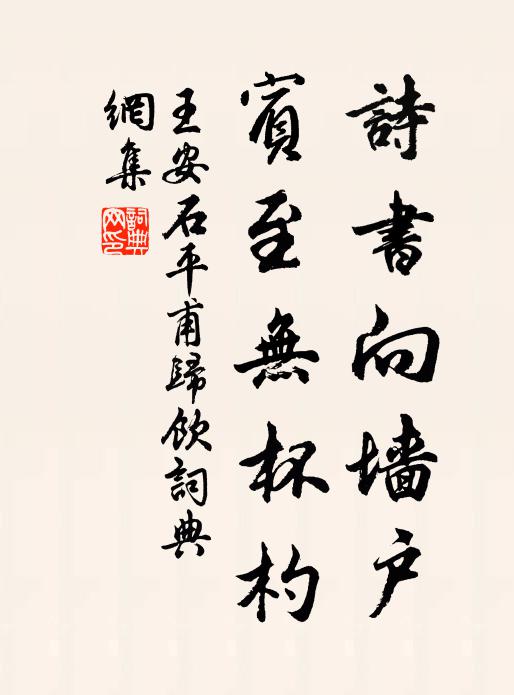 詩書向墙户
賓至無杯杓
王安石平甫歸飲詞典
網集
詞典
网印